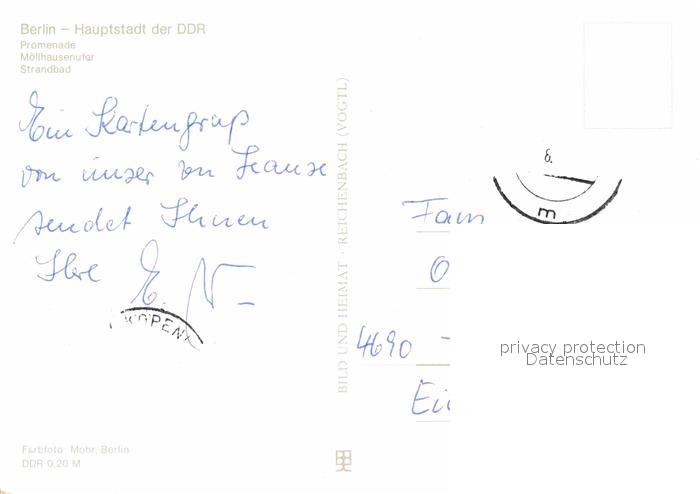 Berlin – Hauptstadt der DDR
Promenade
Möllhausenufer
Strandbad
Ein Kartengruß
von unser en
sendet Ihnen
Ihre E. N.
KÖPEN
Farbfoto: Mohr, Berlin
DDR 0,20 M
BILD UND HEIMAT · REICHENBACH (VOGTL)
m
Fam
O
4690 -
Ei
privacy protection
Datenschutz